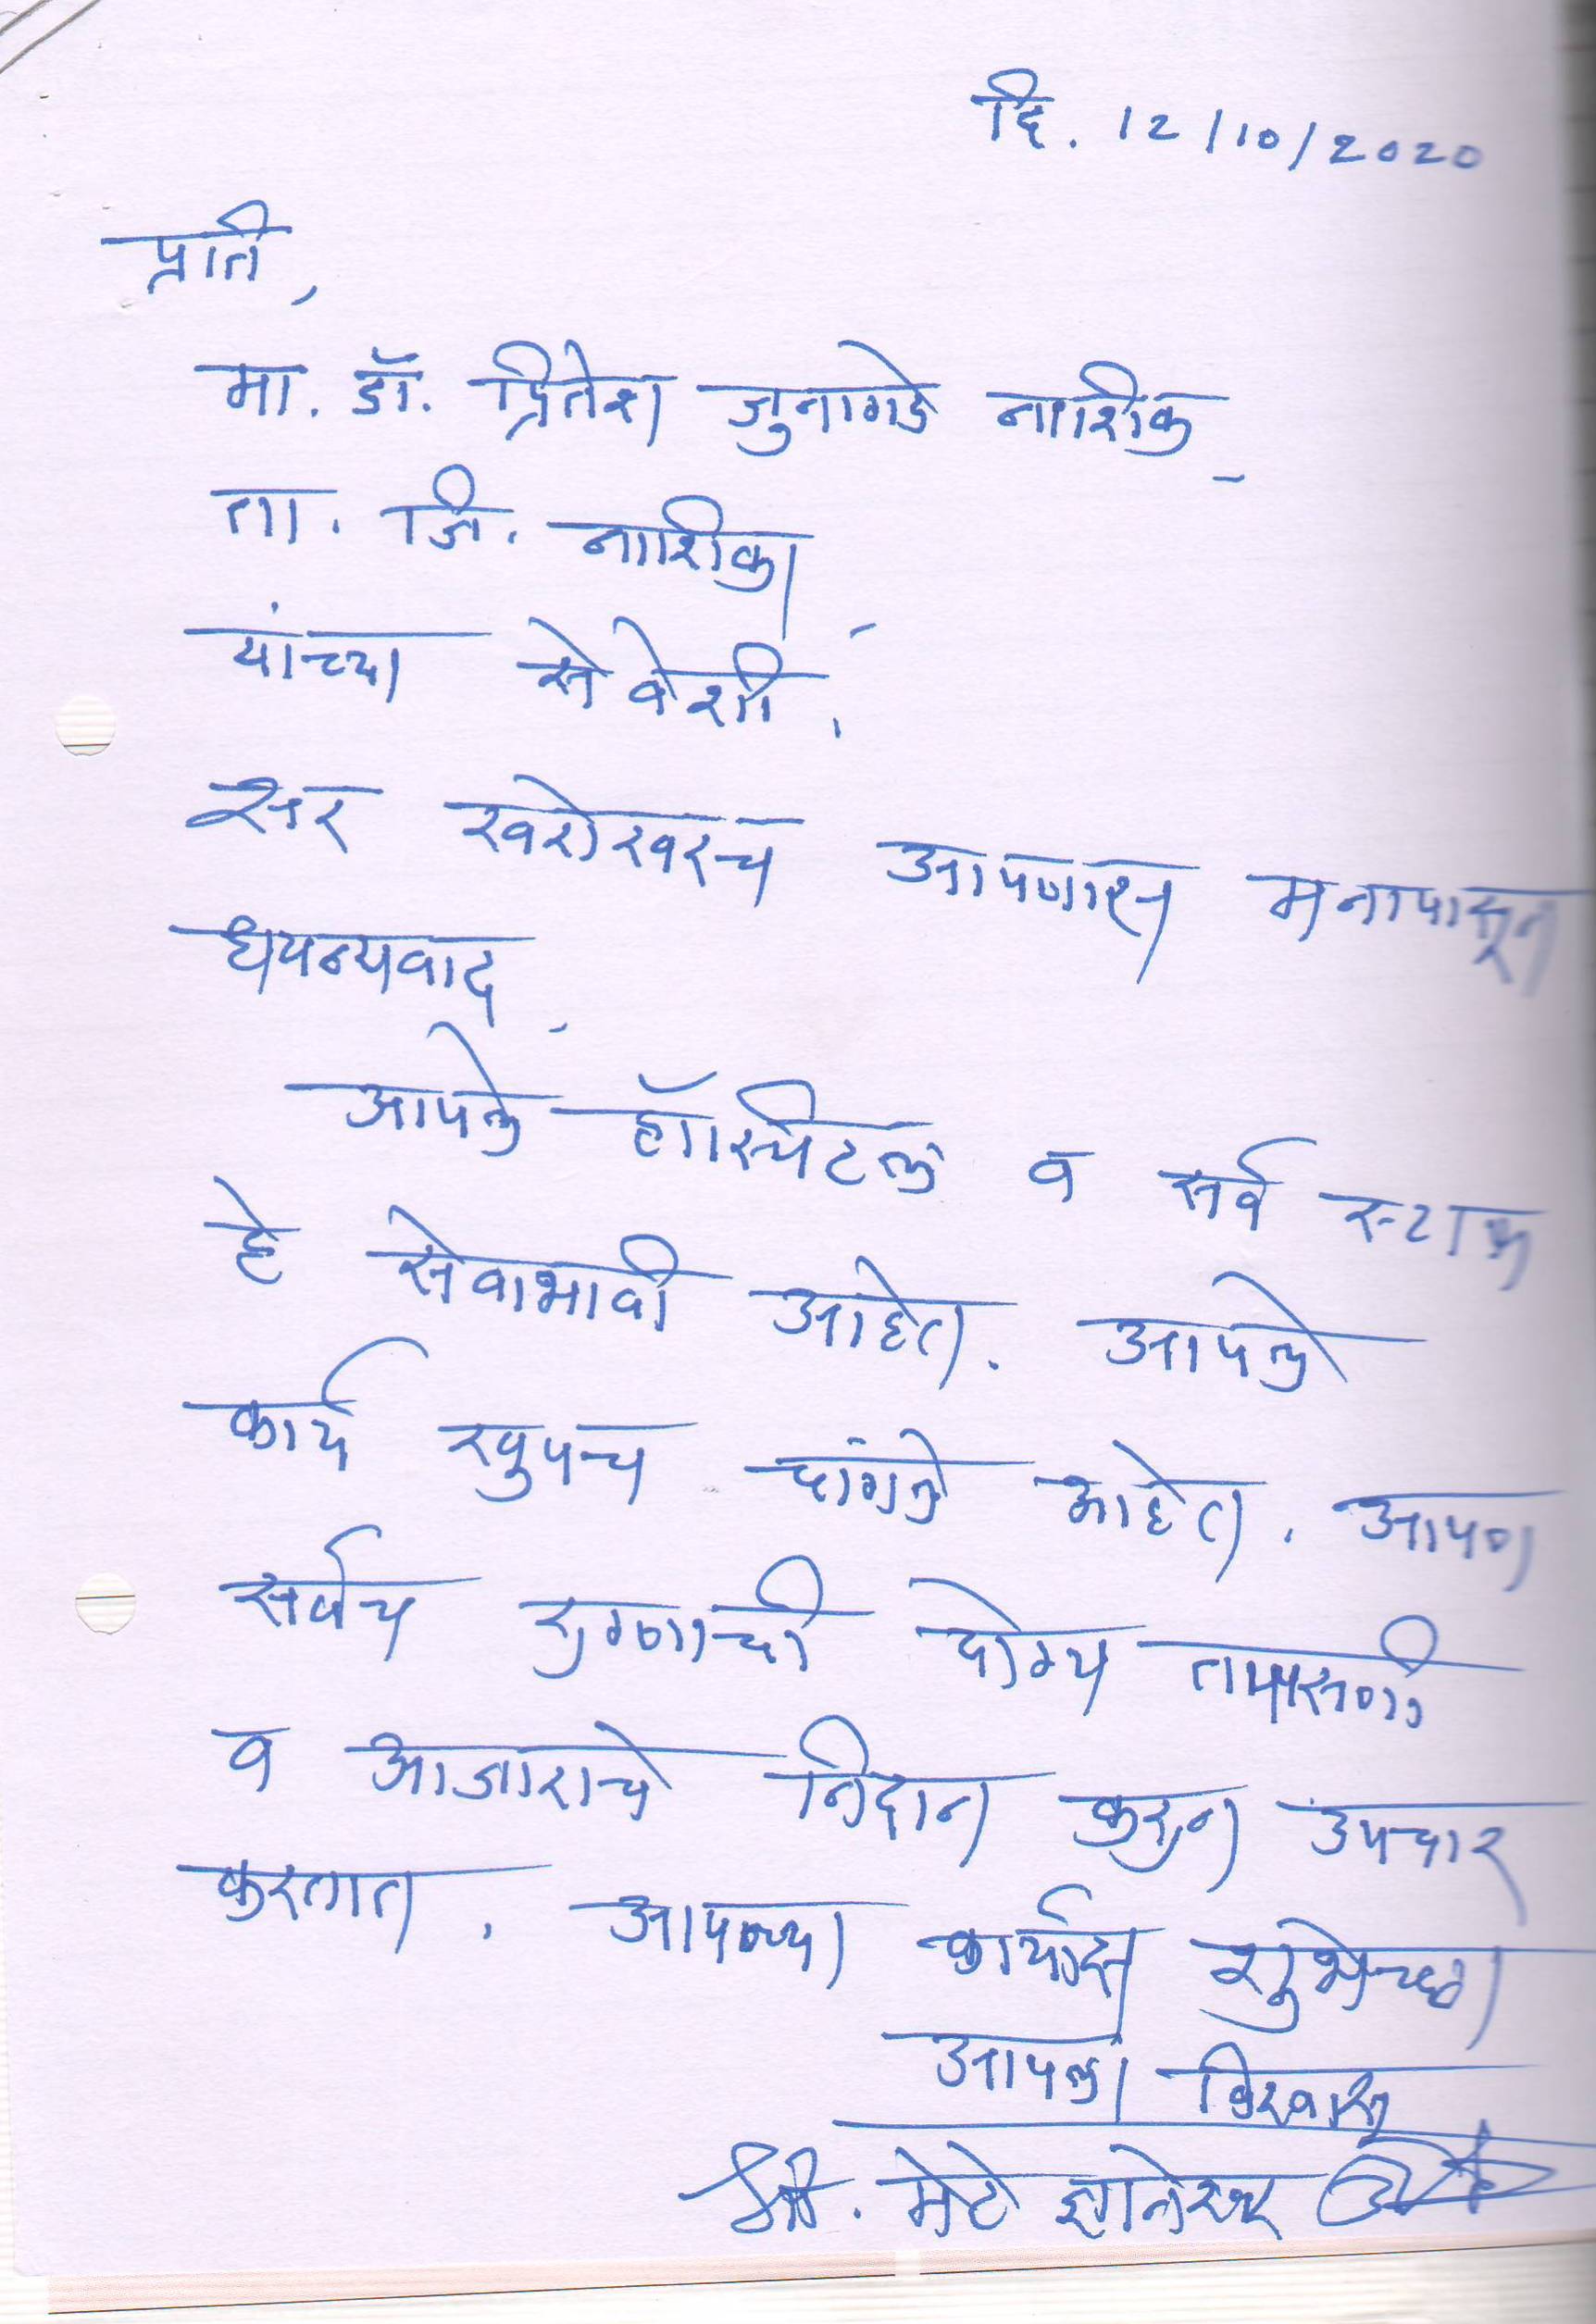 दि. 12/10/2020
प्रति,
मा. डॉ. प्रितेश जुनागडे नाशिक
ता. जि. नाशिक
यांच्या सेवेशी.
सर खरोखरच आपणास मनापासून
धयन्यवाद
आपले हॉस्पिटल व सर्व स्टाफ
हे सेवाभावी आहेत. आपले
कार्य खुपच चांगले आहेत. आपण
सर्वच रुग्णाची योग्य तापसणी
व आजाराचे निदान करून उपचार
करतात. आपल्या कार्यास शुभेच्छा
आपला विश्वासू
श्री. मेटे ज्ञानेश्वर